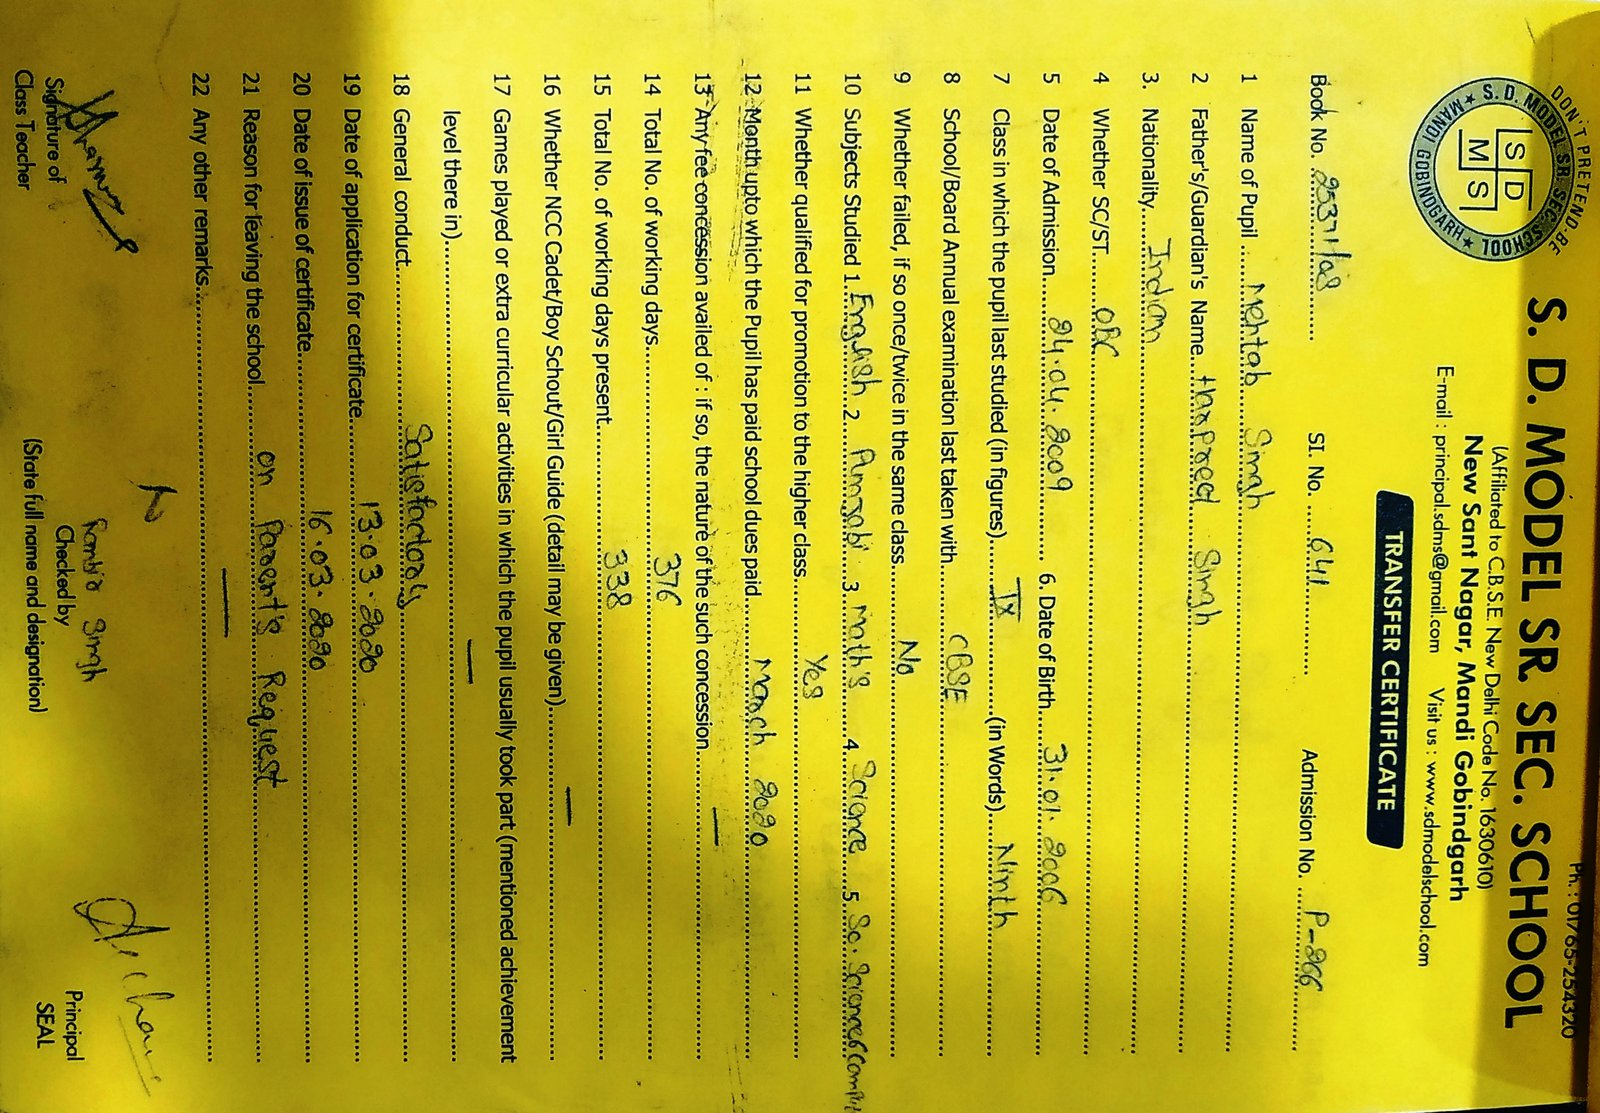 Ph. : 01765-254320
DON'T PRETEND-BE
S. D. MODEL SR. SEC. SCHOOL
★ MANDI GOBINDGARH ★
S D
M S
S. D. MODEL SR. SEC. SCHOOL
(Affiliated to C.B.S.E. New Delhi Code No. 1630610)
New Sant Nagar, Mandi Gobindgarh
E-mail : principal.sdms@gmail.com Visit us : www.sdmodelschool.com
TRANSFER CERTIFICATE
Book No. 2531/28 SI. No. 641 Admission No. P-266
1 Name of Pupil Mehtab Singh
2 Father's/Guardian's Name Harpreet Singh
3. Nationality Indian
4 Whether SC/ST OBC
5 Date of Admission 24.04.2009 6. Date of Birth 31.01.2006
7 Class in which the pupil last studied (in figures) IX (in Words) Ninth
8 School/Board Annual examination last taken with CBSE
9 Whether failed, if so once/twice in the same class No
10 Subjects Studied 1. English 2. Punjabi 3. Maths 4. Science 5. So. Science
11 Whether qualified for promotion to the higher class Yes
12 Month upto which the Pupil has paid school dues paid March 2020
13 Any fee concession availed of : if so, the nature of the such concession —
14 Total No. of working days 376
15 Total No. of working days present 338
16 Whether NCC Cadet/Boy Schout/Girl Guide (detail may be given) —
17 Games played or extra curricular activities in which the pupil usually took part (mentioned achievement
level there in) —
18 General conduct Satisfactory
19 Date of application for certificate 13.03.2020
20 Date of issue of certificate 16.03.2020
21 Reason for leaving the school on Parent's Request
22 Any other remarks —
Singh
Signature of Checked by Principal
Class Teacher (State full name and designation) SEAL